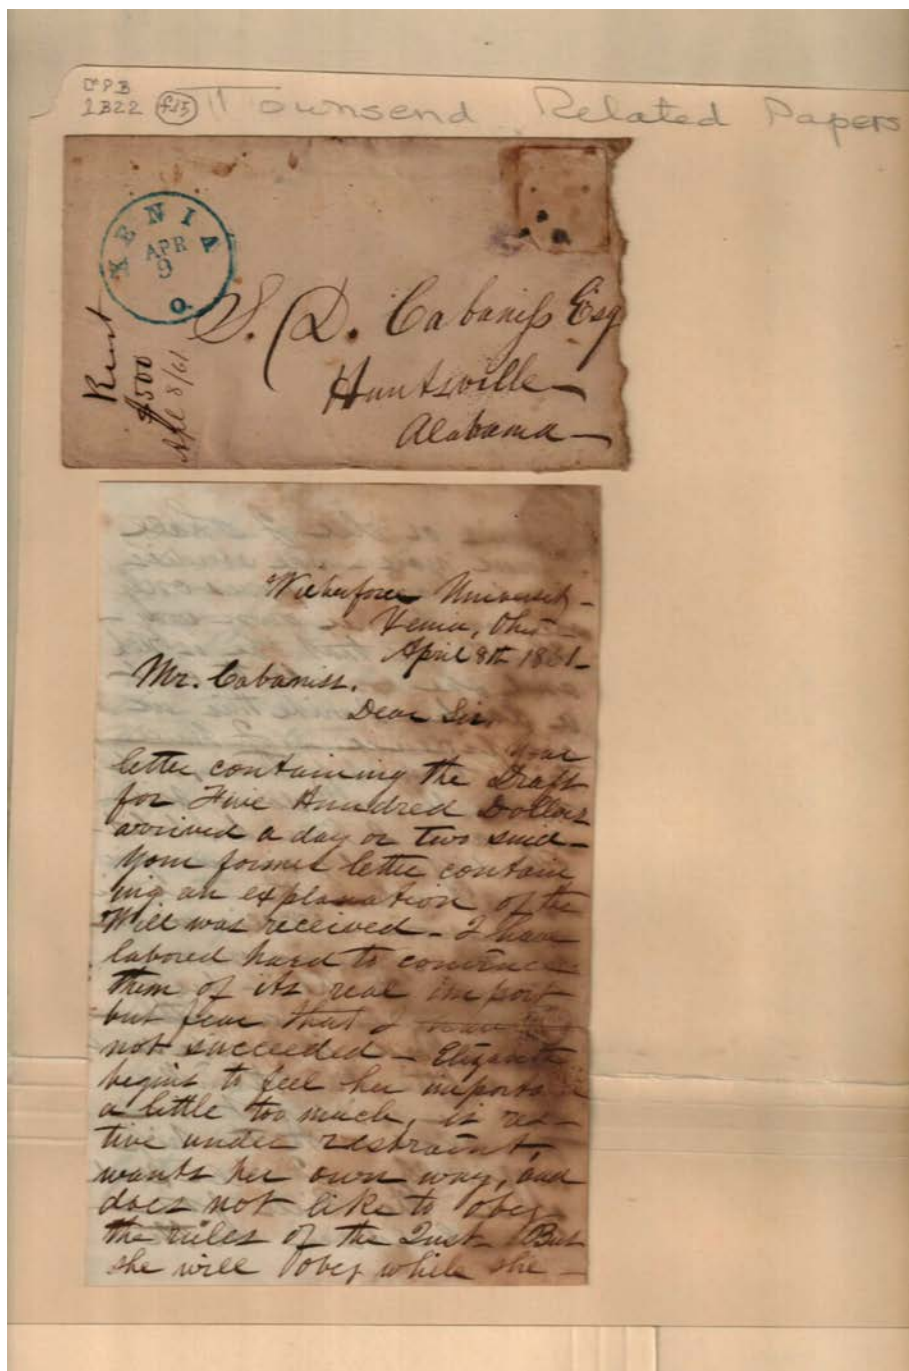 CPB
2B22 f25 Townsend Related Papers
XENIA
APR
9
O.
S. D. Cabaniss Esq
Huntsville
Alabama
Rust
$500
Apl 8/61
Wilberforce University -
Xenia, Ohio -
April 8th 1861 -
Mr. Cabaniss.
Dear Sir,
Your
letter containing the Draft
for Five Hundred Dollars
arrived a day or two since -
Your former letter contain
ing an explanation of the
Will was received - I have
labored hard to convince
them of its real import
but fear that I have
not succeeded - Elizabeth
begins to feel her
a little too much, is res -
tive under restraint,
wants her own way, and
does not like to obey
the rules of the Inst. But
she will obey while she -